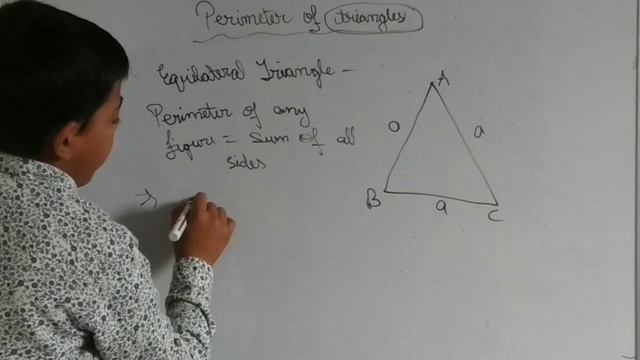 Perimeter of triangles
Equilateral Triangle -
Perimeter of any
figure = Sum of all
sides
A
a
a
B
a
C